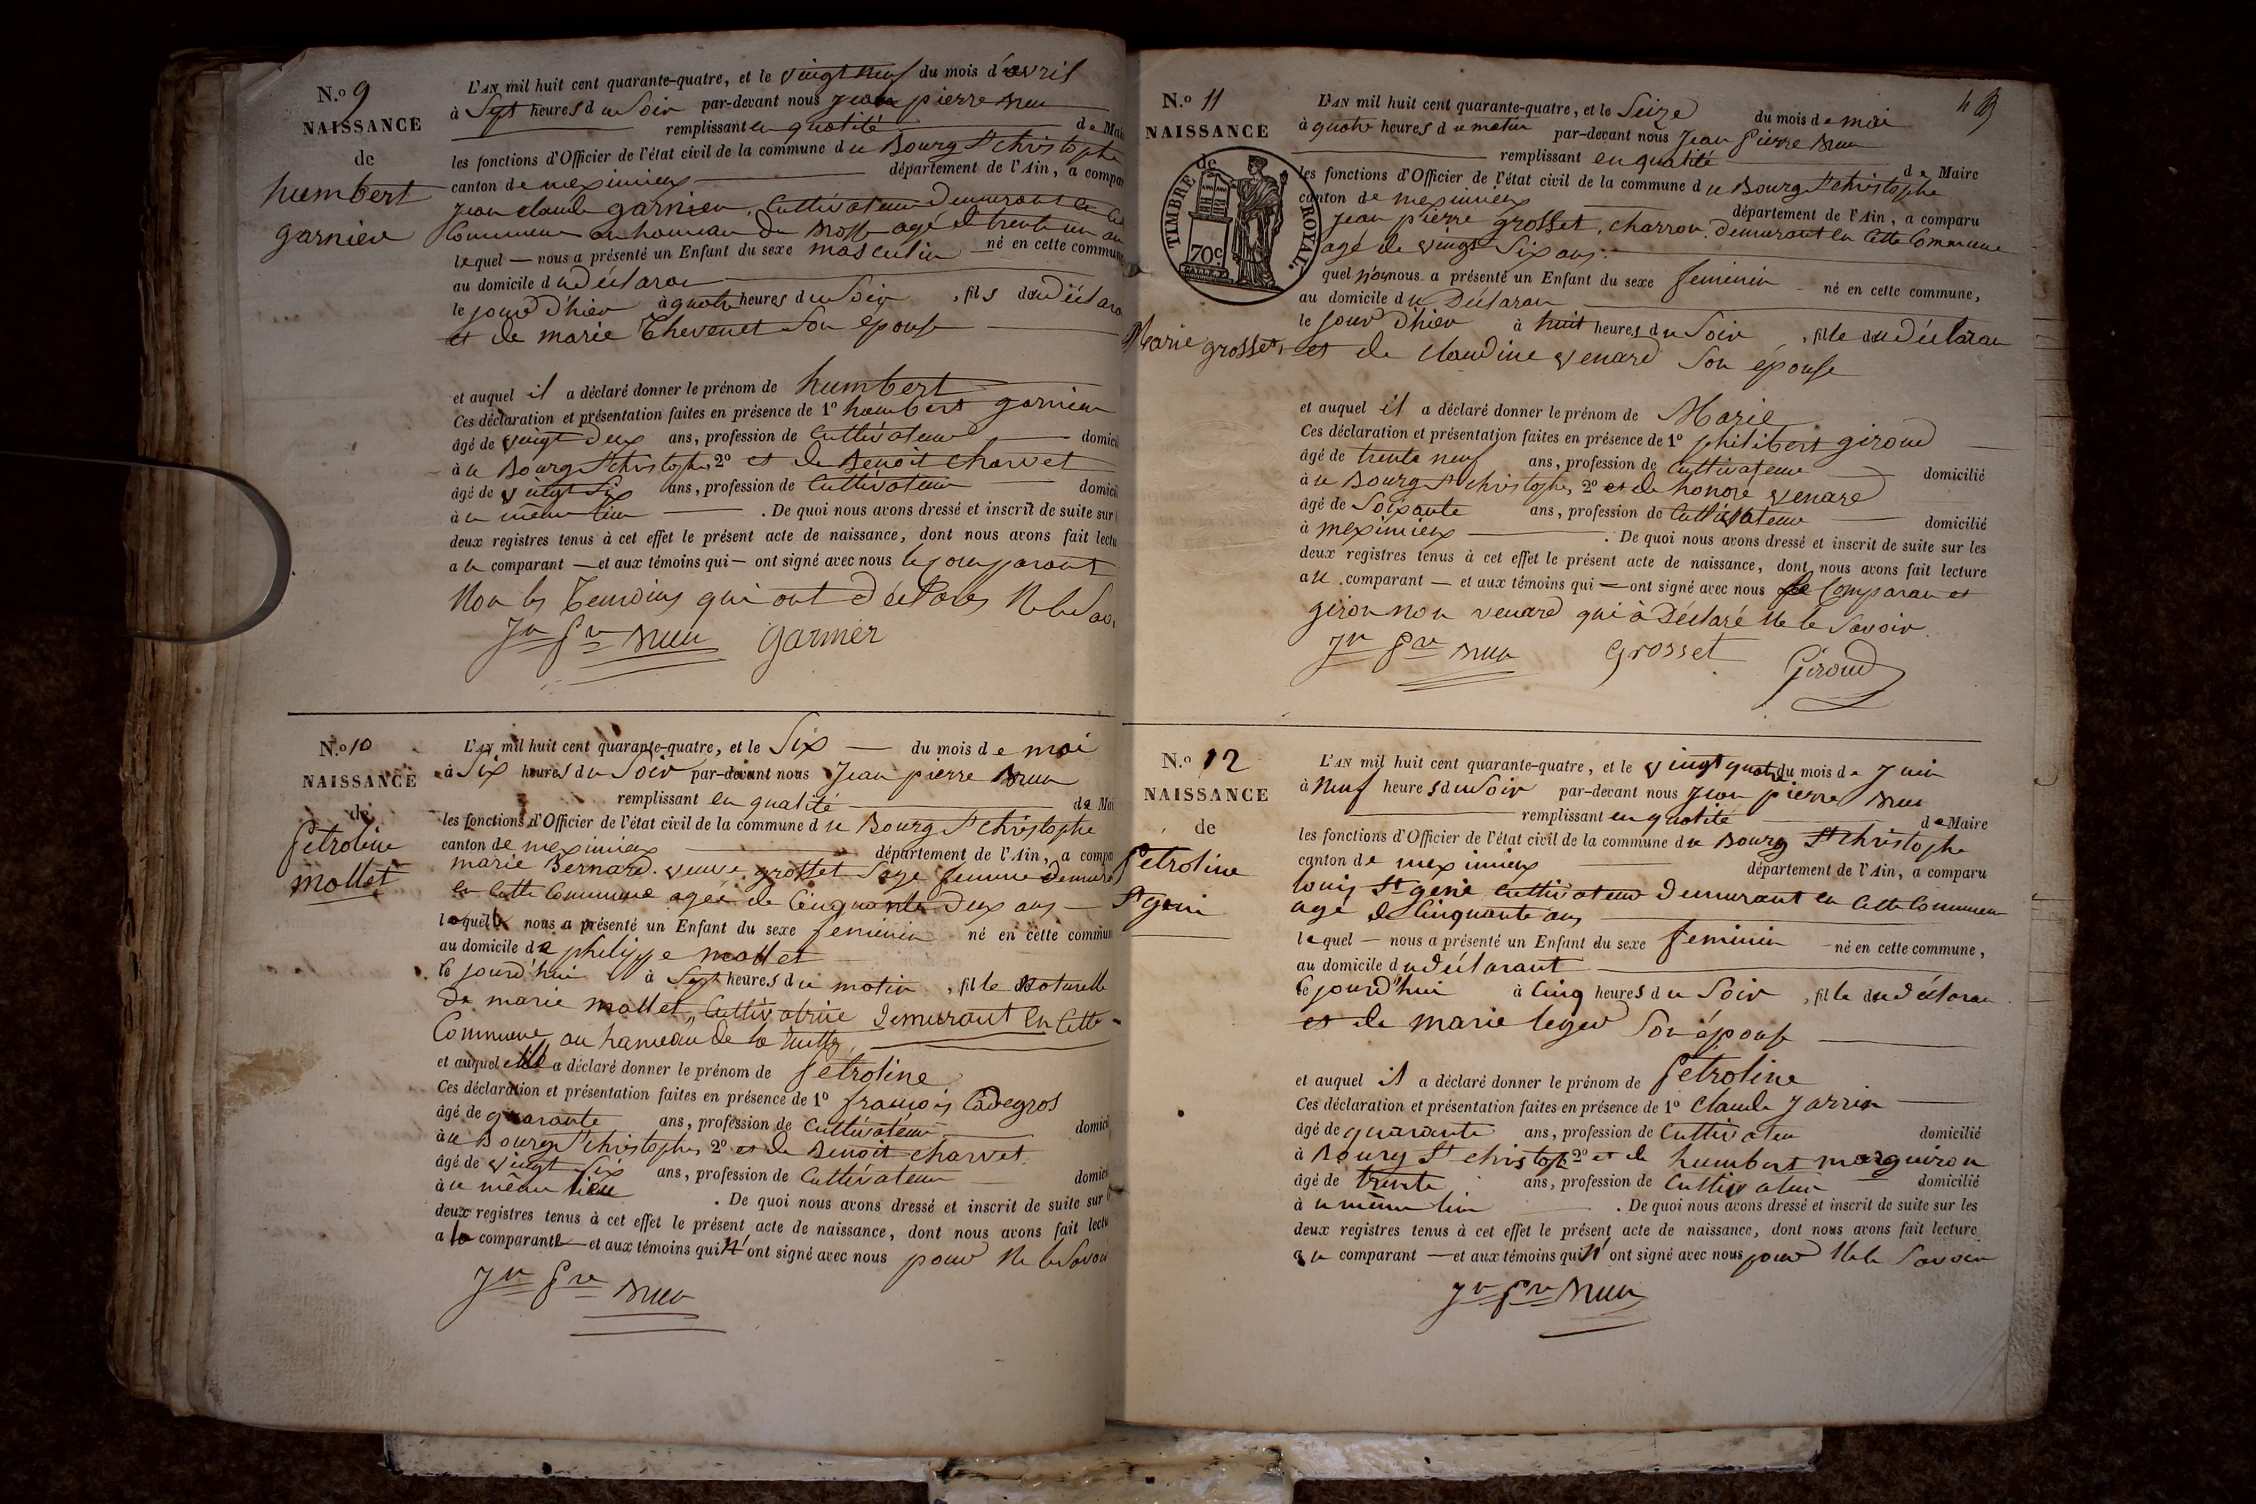 N.o 9
NAISSANCE
de
humbert
garnier
L'AN mil huit cent quarante-quatre, et le vingt neuf du mois d'avril
à Sept heures du Soir par-devant nous jean pierre Brun
remplissant en qualité de Mai
les fonctions d'Officier de l'état civil de la commune du Bourg St christophe
canton de meximieux département de l'Ain, a compa
jean claude garnier, Cultivateur Demeurant en
Commune au hameau de agé de trente un an
lequel — nous a présenté un Enfant du sexe masculin né en cette commune
au domicile du déclaran
le jour d'hier à quatre heures du Soir, fils du déclara
et de marie Thevenet Son épouse
et auquel il a déclaré donner le prénom de humbert
Ces déclaration et présentation faites en présence de 1o humbert garnier
âgé de vingt deux ans, profession de Cultivateur domici
à u Bourg St christophe, 2o et de Benoit charvet
âgé de vingt Six ans, profession de Cultivateur domici
à u même lieu. De quoi nous avons dressé et inscrit de suite sur
deux registres tenus à cet effet le présent acte de naissance, dont nous avons fait lectu
au comparant — et aux témoins qui — ont signé avec nous le comparant
Non les Temoins qui ont déclarés Ne le Sav
Jn Pre Brun garnier
N.o 10
NAISSANCE
de
Petroline
mollet
L'AN mil huit cent quarante-quatre, et le Six — du mois de mai
à Six heures du Soir par-devant nous Jean pierre Brun
remplissant en qualité de Mai
les fonctions d'Officier de l'état civil de la commune du Bourg St christophe
canton de meximieux département de l'Ain, a compa
marie Bernard veuve grosset Sage femme Demeura
en Cette Commune agée de Cinquante Deux ans —
laquelle nous a présenté un Enfant du sexe feminin né en cette commun
au domicile de philippe mollet
Ce jourd'hui à Sept heures du matin, fille Naturelle
De marie mollet, Cultivatrice Demeurant en Cette
Commune au hameau de la
et auquel elle a déclaré donner le prénom de Petroline
Ces déclaration et présentation faites en présence de 1o françois Cadegros
âgé de quarante ans, profession de Cultivateur domici
à u Bourg St christophe, 2o et de Benoit charvet
âgé de vingt Six ans, profession de Cultivateur domici
à u même lieu. De quoi nous avons dressé et inscrit de suite sur
deux registres tenus à cet effet le présent acte de naissance, dont nous avons fait lectu
a la comparante — et aux témoins qui N'ont signé avec nous pour Ne le Savoi
Jn Pre Brun
N.o 11
NAISSANCE
de
TIMBRE ROYAL.
70c.
Marie grosset
L'AN mil huit cent quarante-quatre, et le Seize du mois de mai
à quatre heures du matin par-devant nous Jean Pierre Brun
remplissant en qualité de Maire
les fonctions d'Officier de l'état civil de la commune du Bourg St christophe
canton de meximieux département de l'Ain, a comparu
Jean pierre grosset, charron, demeurant en Cette Commune
agé de vingt Six ans.
quel nous a présenté un Enfant du sexe feminin né en cette commune,
au domicile du Déclaran
le jour d'hier à huit heures du Soir, fille du déclaran
et de claudine venard Son épouse
et auquel il a déclaré donner le prénom de Marie
Ces déclaration et présentation faites en présence de 1o philibert giroud
âgé de trente neuf ans, profession de Cultivateur domicilié
à u Bourg St christophe, 2o et de honoré venard
âgé de Soixante ans, profession de Cultivateur domicilié
à meximieux. De quoi nous avons dressé et inscrit de suite sur les
deux registres tenus à cet effet le présent acte de naissance, dont nous avons fait lecture
au comparant — et aux témoins qui — ont signé avec nous le Comparan et
giron non venard qui à Déclaré Ne le Savoir
Jn Pre Brun Grosset Giroud
N.o 12
NAISSANCE
de
Petroline
St geni
L'AN mil huit cent quarante-quatre, et le vingt quatre du mois de Juin
à Neuf heures du Soir par-devant nous Jean pierre Brun
remplissant en qualité de Maire
les fonctions d'Officier de l'état civil de la commune du Bourg St christophe
canton de meximieux département de l'Ain, a comparu
louis St genie Cultivateur Demeurant en Cette Commune
agé de Cinquante ans
lequel — nous a présenté un Enfant du sexe feminin né en cette commune,
au domicile du déclarant
Ce jourd'hui à Cinq heures du Soir, fille du déclaran
et de marie leger Son épouse
et auquel il a déclaré donner le prénom de Petroline
Ces déclaration et présentation faites en présence de 1o Claude Jarrin
âgé de quarante ans, profession de Cultivateur domicilié
à Bourg St christoph 2o et de humbert marguiron
âgé de trente ans, profession de Cultivateur domicilié
à u même lieu. De quoi nous avons dressé et inscrit de suite sur les
deux registres tenus à cet effet le présent acte de naissance, dont nous avons fait lecture
au comparant — et aux témoins qui N'ont signé avec nous pour Ne le Savoir
Jn Pre Brun